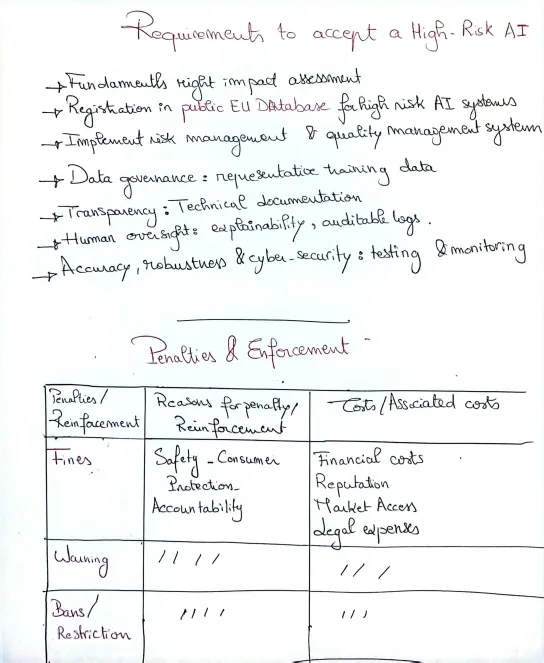 Requirements to accept a High-Risk AI
→ Fundamentls right impact assessment
→ Registration in public EU DAtabase for high risk AI systems
→ Implement risk management & quality management system
→ Data governance : representative training data
→ Transparency : Technical documentation
→ Human oversight : explainability, auditable logs.
→ Accuracy, robustness & cyber-security : testing & monitoring
Penalties & Enforcement
Penalties/
Reinforcement
Reasons for penalty/
Reinforcement
Costs/Associated costs
Fines
Safety - Consumer
Protection -
Accountability
Financial costs
Reputation
Market Access
Legal expenses
Warning
/ / / /
/ / /
Bans/
Restriction
/ / / /
/ / /